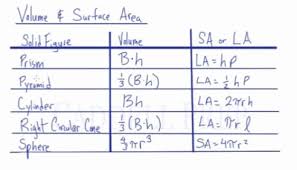 Volume & Surface Area
Solid Figure Volume SA or LA
Prism B·h LA = hP
Pyramid 1/3 (B·h) LA = 1/2 hP
Cylinder Bh LA = 2πrh
Right Circular Cone 1/3 (B·h) LA = πrl
Sphere 4/3 πr³ SA = 4πr²